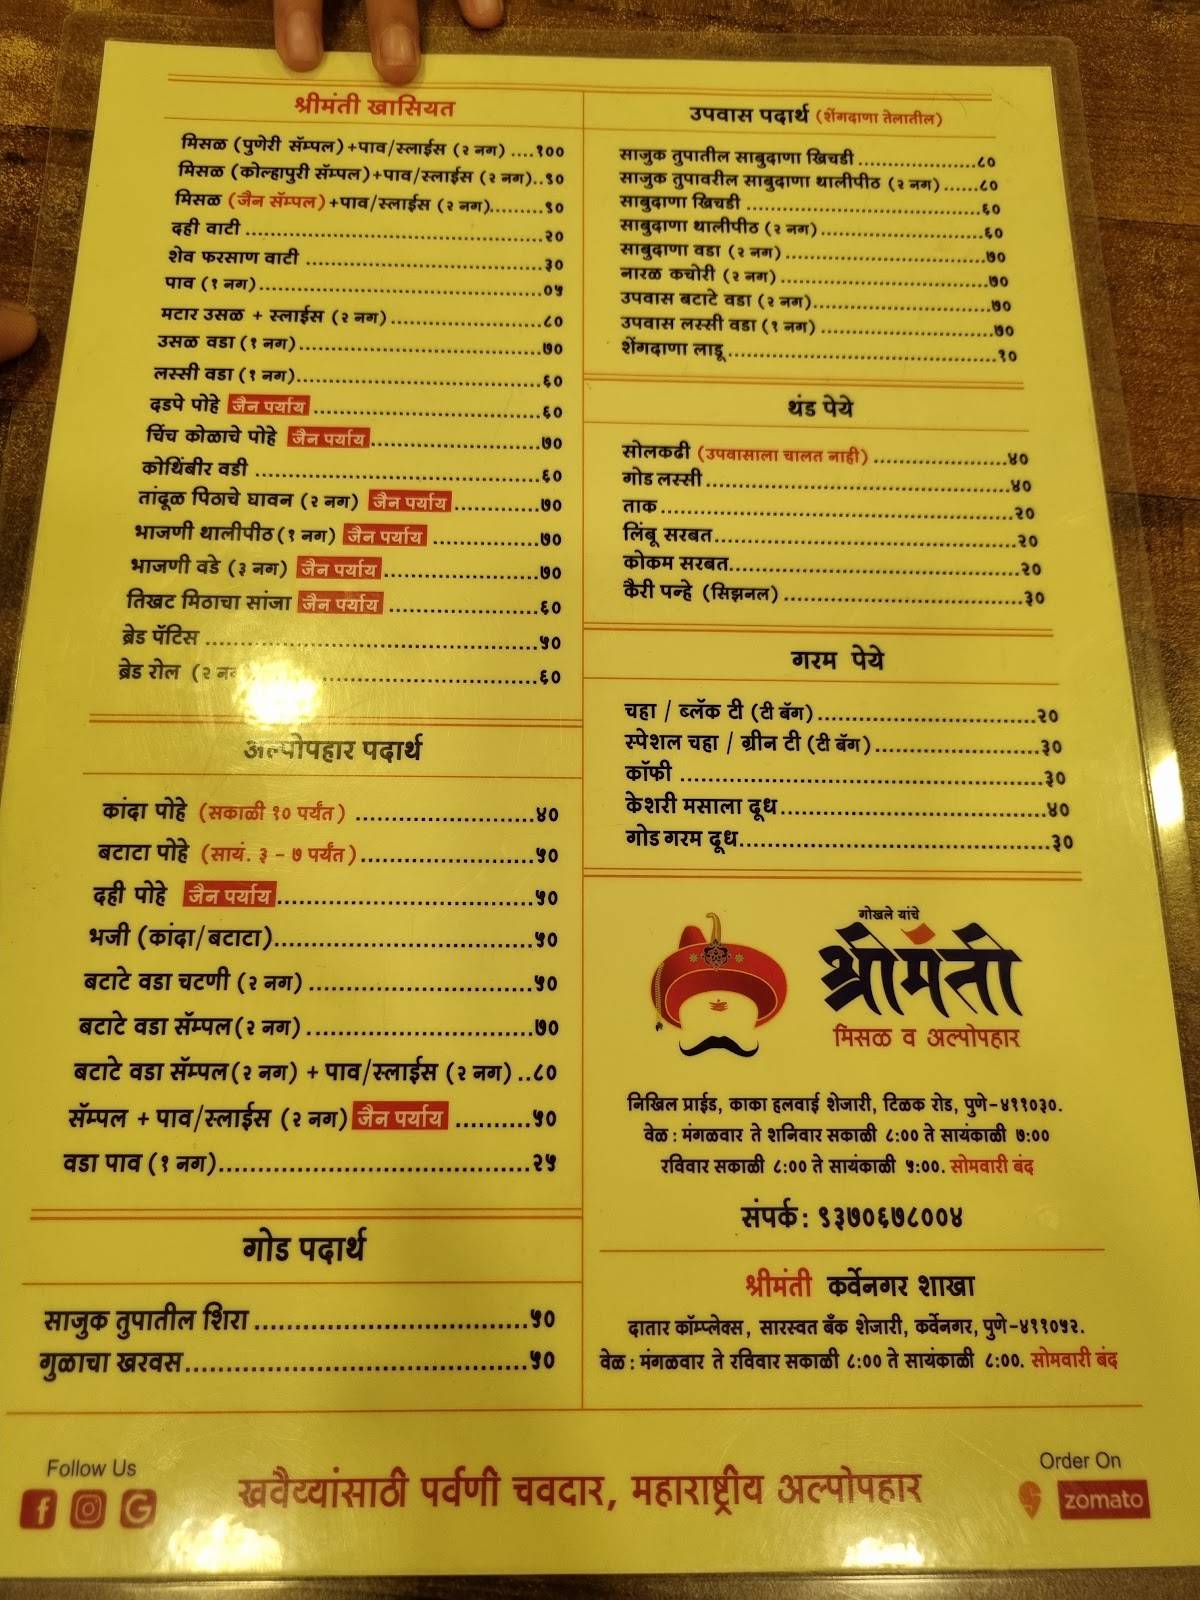 श्रीमंती खासियत
मिसळ (पुणेरी सॅम्पल)+पाव/स्लाईस (२ नग) ....१००
मिसळ (कोल्हापुरी सॅम्पल)+पाव/स्लाईस (२ नग)..९०
मिसळ (जैन सॅम्पल)+पाव/स्लाईस (२ नग).........९०
दही वाटी ....................२०
शेव फरसाण वाटी ....................३०
पाव (१ नग)....................०५
मटार उसळ + स्लाईस (२ नग)....................८०
उसळ वडा (१ नग)....................७०
लस्सी वडा (१ नग)....................६०
दडपे पोहे जैन पर्याय ....................६०
चिंच कोळाचे पोहे जैन पर्याय....................७०
कोथिंबीर वडी ....................६०
तांदूळ पिठाचे घावन (२ नग) जैन पर्याय..............७०
भाजणी थालीपीठ(१ नग) जैन पर्याय ..............७०
भाजणी वडे (३ नग) जैन पर्याय....................७०
तिखट मिठाचा सांजा जैन पर्याय ....................६०
ब्रेड पॅटिस ....................५०
ब्रेड रोल (२ ....................६०
अल्पोपहार पदार्थ
कांदा पोहे (सकाळी १० पर्यंत) ....................४०
बटाटा पोहे (सायं. ३ - ७ पर्यंत)....................५०
दही पोहे जैन पर्याय....................५०
भजी (कांदा/बटाटा)....................५०
बटाटे वडा चटणी (२ नग) ....................५०
बटाटे वडा सॅम्पल(२ नग) ....................७०
बटाटे वडा सॅम्पल(२ नग) + पाव/स्लाईस (२ नग) ..८०
सॅम्पल + पाव/स्लाईस (२ नग) जैन पर्याय ..........५०
वडा पाव (१ नग)....................२५
गोड पदार्थ
साजुक तुपातील शिरा ....................५०
गुळाचा खरवस....................५०
उपवास पदार्थ (शेंगदाणा तेलातील)
साजुक तुपातील साबुदाणा खिचडी ................८०
साजुक तुपावरील साबुदाणा थालीपीठ (२ नग) ......८०
साबुदाणा खिचडी ....................६०
साबुदाणा थालीपीठ (२ नग)....................६०
साबुदाणा वडा (२ नग)....................७०
नारळ कचोरी (२ नग) ....................७०
उपवास बटाटे वडा (२ नग)....................७०
उपवास लस्सी वडा (१ नग) ....................७०
शेंगदाणा लाडू....................१०
थंड पेये
सोलकढी (उपवासाला चालत नाही) ....................४०
गोड लस्सी....................४०
ताक....................२०
लिंबू सरबत....................२०
कोकम सरबत....................२०
कैरी पन्हे (सिझनल)....................३०
गरम पेये
चहा / ब्लॅक टी (टी बॅग)....................२०
स्पेशल चहा / ग्रीन टी (टी बॅग)....................३०
कॉफी ....................३०
केशरी मसाला दूध....................४०
गोड गरम दूध....................३०
गोखले यांचे
श्रीमंती
मिसळ व अल्पोपहार
निखिल प्राईड, काका हलवाई शेजारी, टिळक रोड, पुणे-४११०३०.
वेळ : मंगळवार ते शनिवार सकाळी ८:०० ते सायंकाळी ७:००
रविवार सकाळी ८:०० ते सायंकाळी ५:००. सोमवारी बंद
संपर्क : ९३७०६७८००४
श्रीमंती कर्वेनगर शाखा
दातार कॉम्प्लेक्स, सारस्वत बँक शेजारी, कर्वेनगर, पुणे-४११०५२.
वेळ : मंगळवार ते रविवार सकाळी ८:०० ते सायंकाळी ८:००. सोमवारी बंद
Follow Us
खवैय्यांसाठी पर्वणी चवदार, महाराष्ट्रीय अल्पोपहार
Order On
zomato